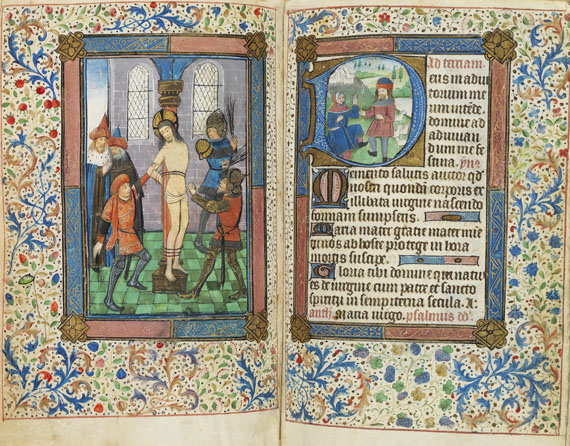 Ad terciam.
Deus in adiu
torium me
um intēde.
domine ad
adiuuan
dum me fe
stina. yn̄s
Memento salutis auctor qd̄
nostri quondā corporis ex
illibata uirgine nascendo
formam sumpseris.
Maria mater gracie mater mie
nos ab hoste protege in hora
mortis suscipe.
Gloria tibi domine qui natus
es de uirgine cum patre et sancto
spiritu in sempiterna secula. A.
anth. Maria uirgo. psalmus dd.